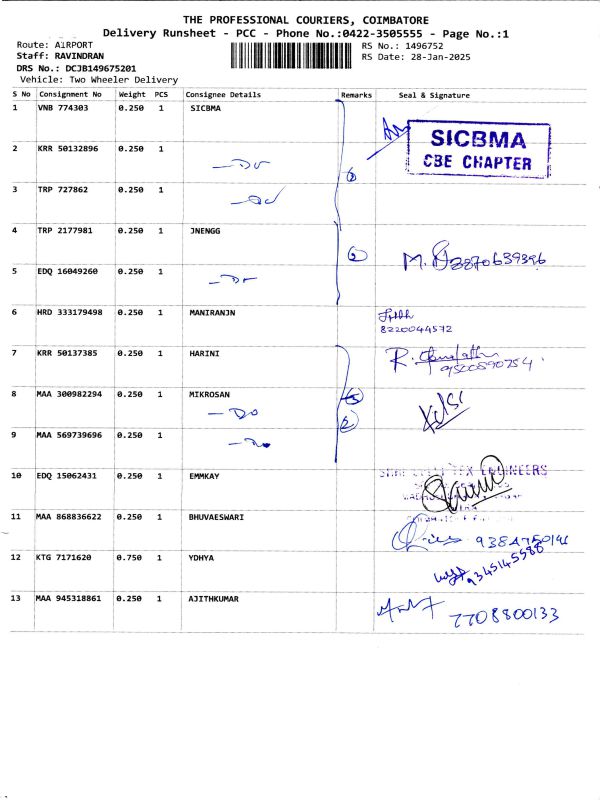 THE PROFESSIONAL COURIERS, COIMBATORE
Delivery Runsheet - PCC - Phone No.:0422-3505555 - Page No.:1
Route: AIRPORT
RS No.: 1496752
Staff: RAVINDRAN
RS Date: 28-Jan-2025
DRS No.: DCJB149675201
Vehicle: Two Wheeler Delivery
S No Consignment No Weight PCS Consignee Details Remarks Seal & Signature
1 VNB 774303 0.250 1 SICBMA
SICBMA
CBE CHAPTER
2 KRR 50132896 0.250 1
3 TRP 727862 0.250 1
4 TRP 2177981 0.250 1 JNENGG
5 EDQ 16049260 0.250 1
6 HRD 333179498 0.250 1 MANIRANJN
8220044572
7 KRR 50137385 0.250 1 HARINI
8 MAA 300982294 0.250 1 MIKROSAN
- Do
2
9 MAA 569739696 0.250 1
10 EDQ 15062431 0.250 1 EMMKAY
ENGINEERS
11 MAA 868836622 0.250 1 BHUVAESWARI
12 KTG 7171620 0.750 1 YDHYA
9345145588
13 MAA 945318861 0.250 1 AJITHKUMAR
7708800133